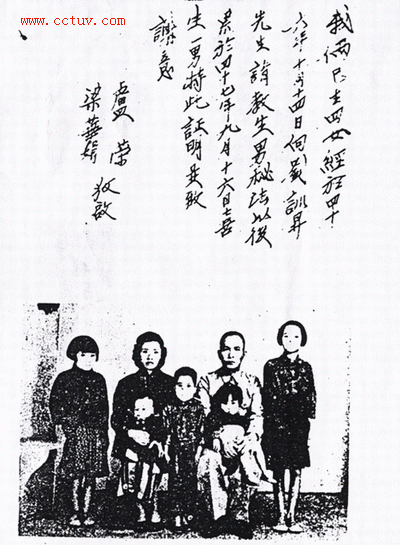 www.cctuv.com
我倆已生四女經於四十
六年十月十四日向戴訓昇
先生請教生男秘法以後
果於四十七年九月十六日喜
生一男特此証明并致
謝意
盧榮
梁華娟 敬啟